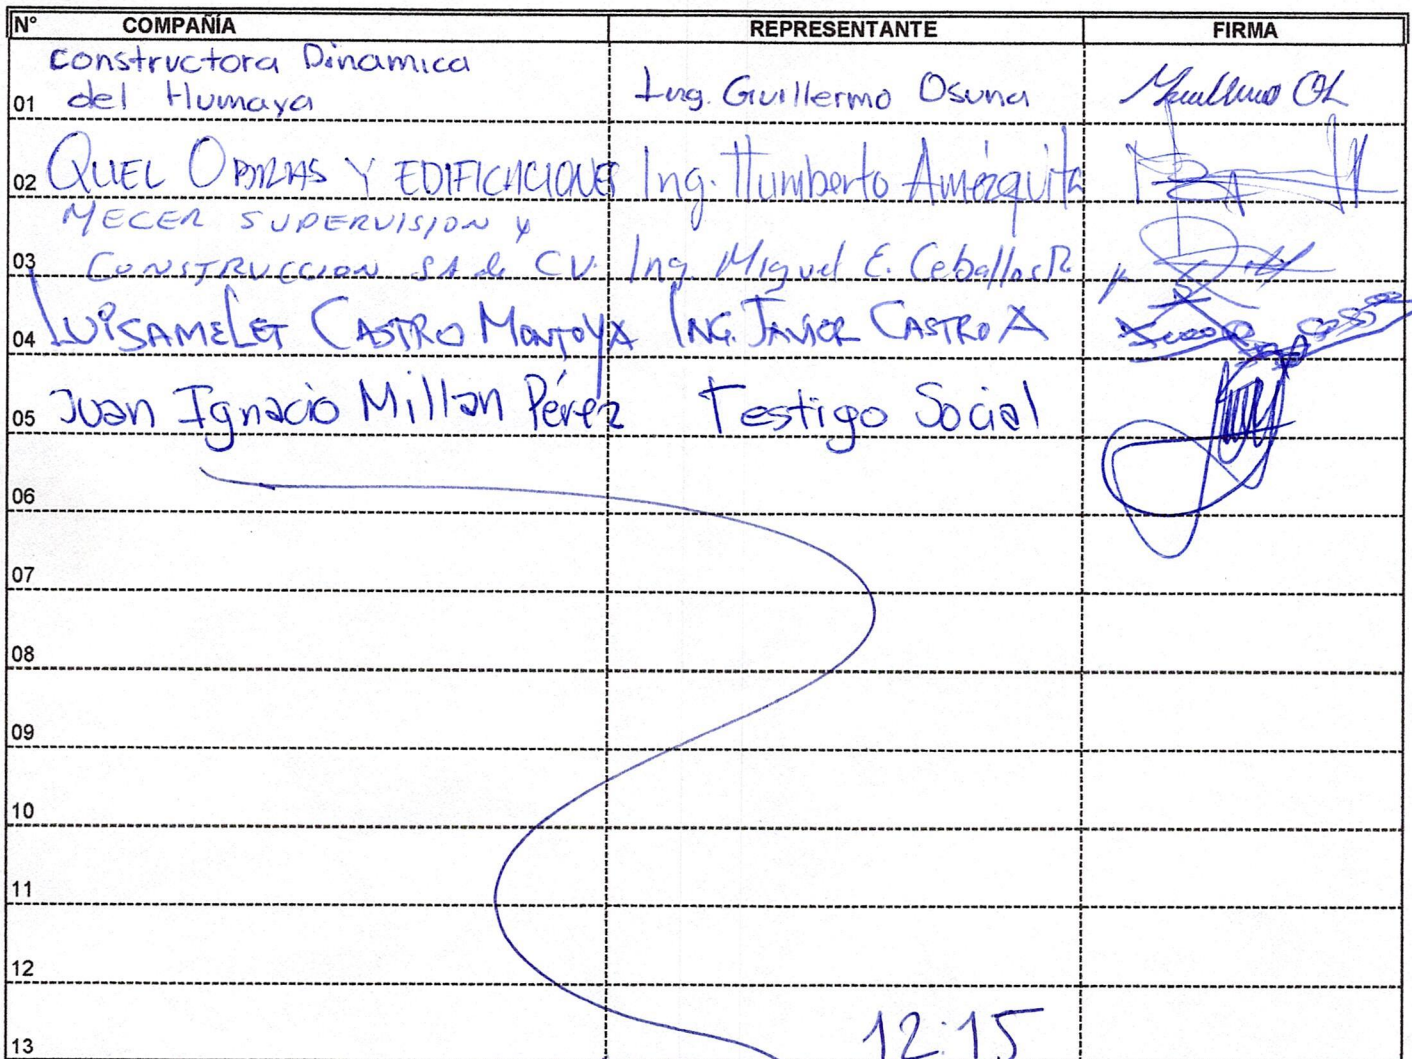 N° COMPAÑÍA REPRESENTANTE FIRMA
Constructora Dinamica
01 del Humaya Ing. Guillermo Osuna
02 QUEL OBRAS Y EDIFICACIONES Ing. Humberto Amézquita
MECER SUPERVISION Y
03 CONSTRUCCION SA de CV. Ing Miguel E. Ceballos R.
04 LUISAMELET CASTRO MONTOYA ING. JAVIER CASTRO A
05 Juan Ignacio Millan Pérez Testigo Social
06
07
08
09
10
11
12
13 12:15